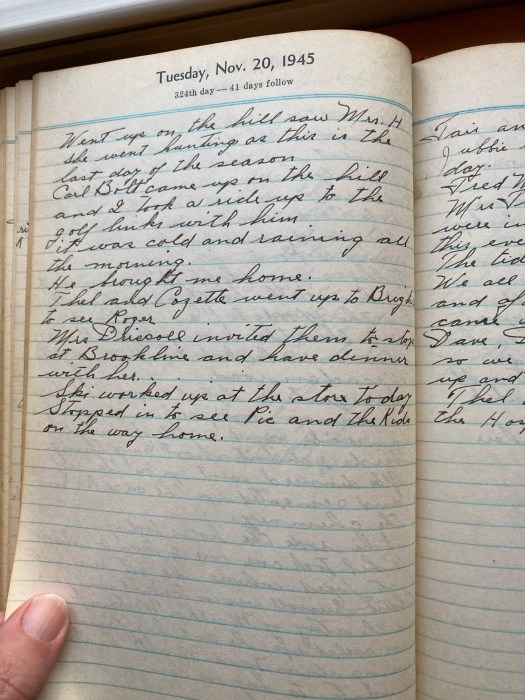 Tuesday, Nov. 20, 1945
324th day — 41 days follow
Went up on the hill saw Mrs. H
she went hunting as this is the
last day of the season
Carl Bolt came up on the hill
and I took a ride up to the
golf links with him
it was cold and raining all
the morning.
He brought me home.
Thel and Cozette went up to Brigh
to see Roger
Mrs Driscoll invited them to stop
at Brookline and have dinner
with her.
Ski worked up at the store today
Stopped in to see Pic and the Kids
on the way home.
Fair an
day.
Fred
Mrs
were in
this eve
The tid
We all
and af
came
Dave,
so we
up and
Thel
the Hos